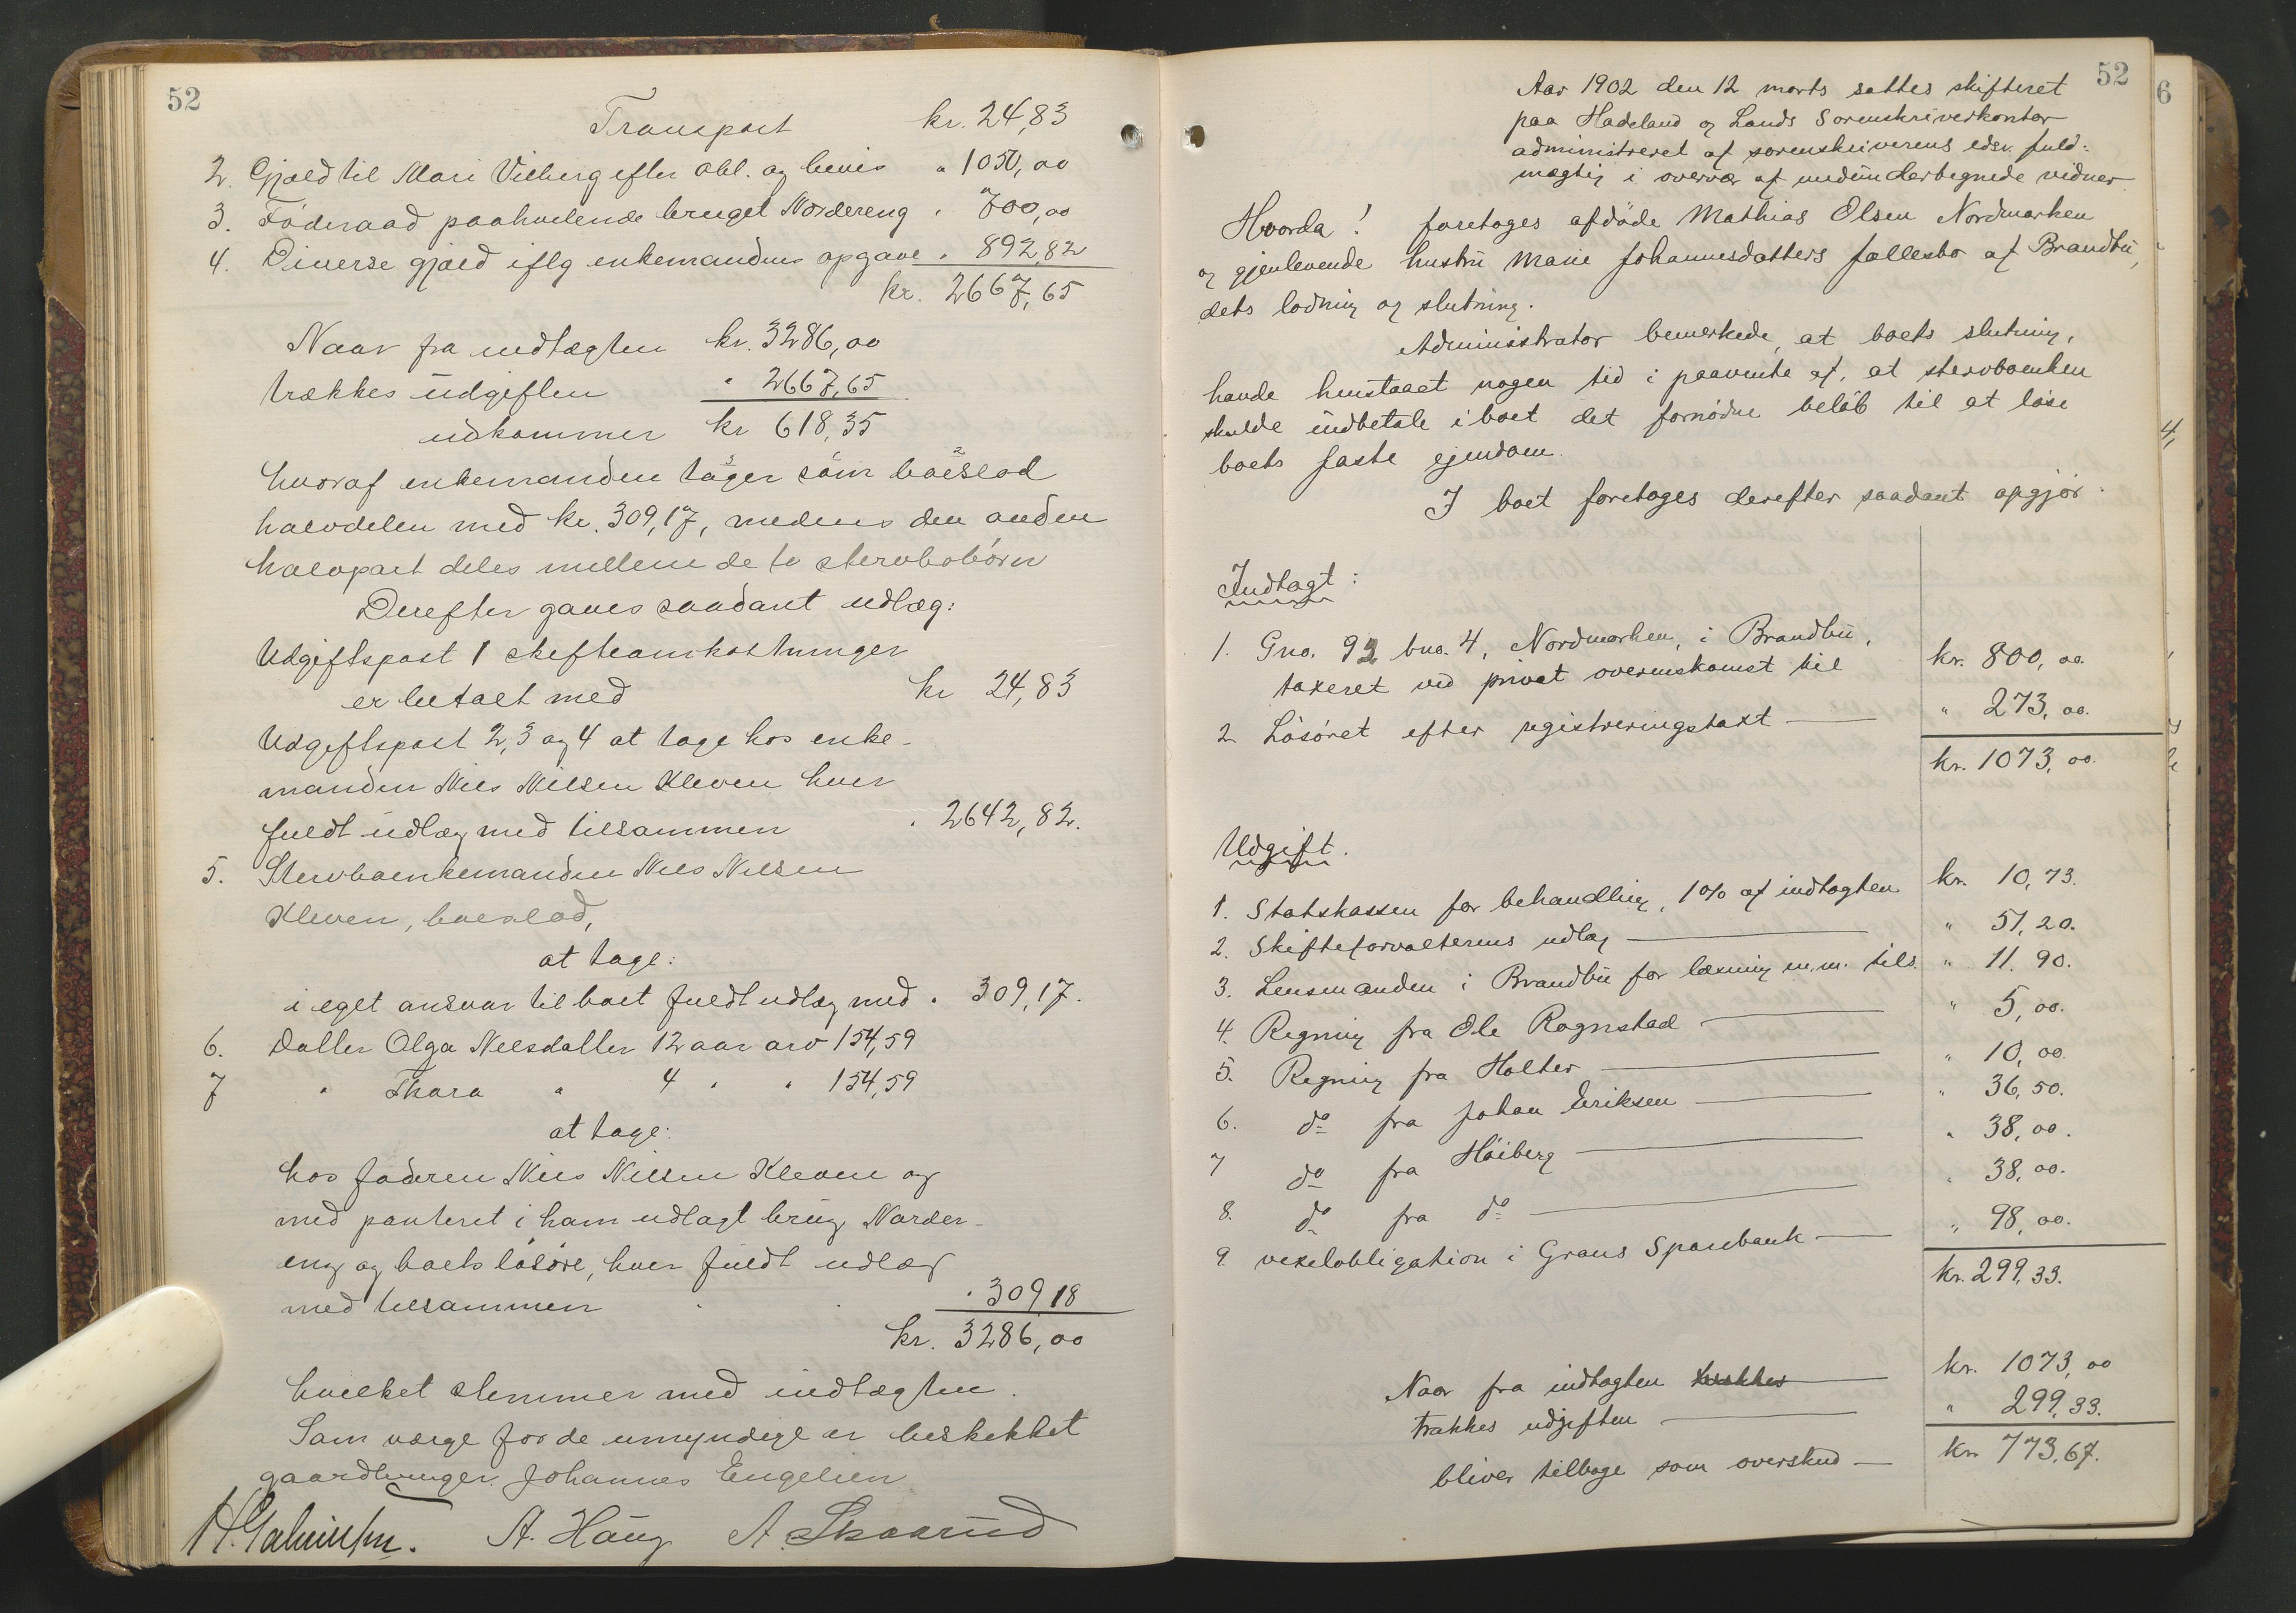 52
Transport kr. 24,83
2. Gjæld til Mari Vilberg efter obl. og bevis " 1050,00
3. Föderaad paahvilende bruget Nordereng " 700,00
4. Diverse gjæld iflg enkemandens opgave " 892,82
kr. 2667,65
Naar fra indtægten kr. 3286,00
trækkes udgiften " 2667,65
udkommer kr 618,35
hvoraf enkemanden tager som boeslod
halvdelen med kr. 309,17, medens den anden
halvpart deles mellem de to stervbobörn
Derefter gaves saadant udlæg:
Udgiftspost 1 skifteomkostninger
er betalt med kr 24,83
Udgiftspost 2, 3 og 4 at tage hos enke-
manden Niels Nilsen Kleven hver
fuldt udlæg med tilsammen " 2642,82.
5. Stervboenkemanden Niels Nilsen
Kleven, boeslod,
at tage:
i eget ansvar til boet fuldt udlæg med " 309,17.
6. Datter Olga Nielsdatter 12 aar arv 154,59
7 " Thora " 4 " " 154,59
at tage:
hos faderen Niels Nilsen Kleven og
med panteret i ham udlagt brug Norder-
eng og boets lösöre, hver fuldt udlæg
med tilsammen " 309,18
kr. 3286,00
hvilket stemmer med indtægten.
Som værge for de umyndige er beskikket
gaardbruger Johannes Engelien
A. Haug A. Skaarud
52
6
Aar 1902 den 12 marts sattes skifteret
paa Hadeland og Lands Sorenskriverkontor
administreret af sorenskriverens edsv. fuld-
mægtig i overvær af medunderteg̅nede vidner
Hvorda! foretoges afdöde Mathias Olsen Nordmarken
og gjenlevende hustru Marie Johannesdatters fællesbo af Brandbu,
dets lodning og slutning.
Administrator bemerkede, at boets slutning,
havde henstaaet nogen tid i paavente af, at stervboenken
skulde indbetale i boet det fornödne belöb til at löse
boets faste ejendom.
I boet foretoges derefter saadant opgjör:
Indtægt:
1. Gno. 92 bno. 4, Nordmarken, i Brandbu,
taxeret ved privat overenskomst til kr. 800,00.
2 Lösöret efter registreringstaxt " 273,00.
kr. 1073,00.
Udgift.
1. Statskassen for behandling, 1% af indtægten kr. 10,73.
2. Skifteforvalterens udlæg " 51,20.
3. Lensmanden i Brandbu for læsning m.m. tils. " 11.90.
4. Regning fra Ole Rognstad " 5,00.
5. Regning fra Holter " 10,00.
6. do fra Johan Eriksen " 36,50.
7 do fra Höiberg " 38,00.
8. do fra do " 38,00.
9 vexelobligation i Grans Sparebank " 98,00.
kr. 299,33.
Naar fra indtægten trækkes kr. 1073,00
trækkes udgiften " 299,33.
bliver tilbage som overskud kr. 773,67.